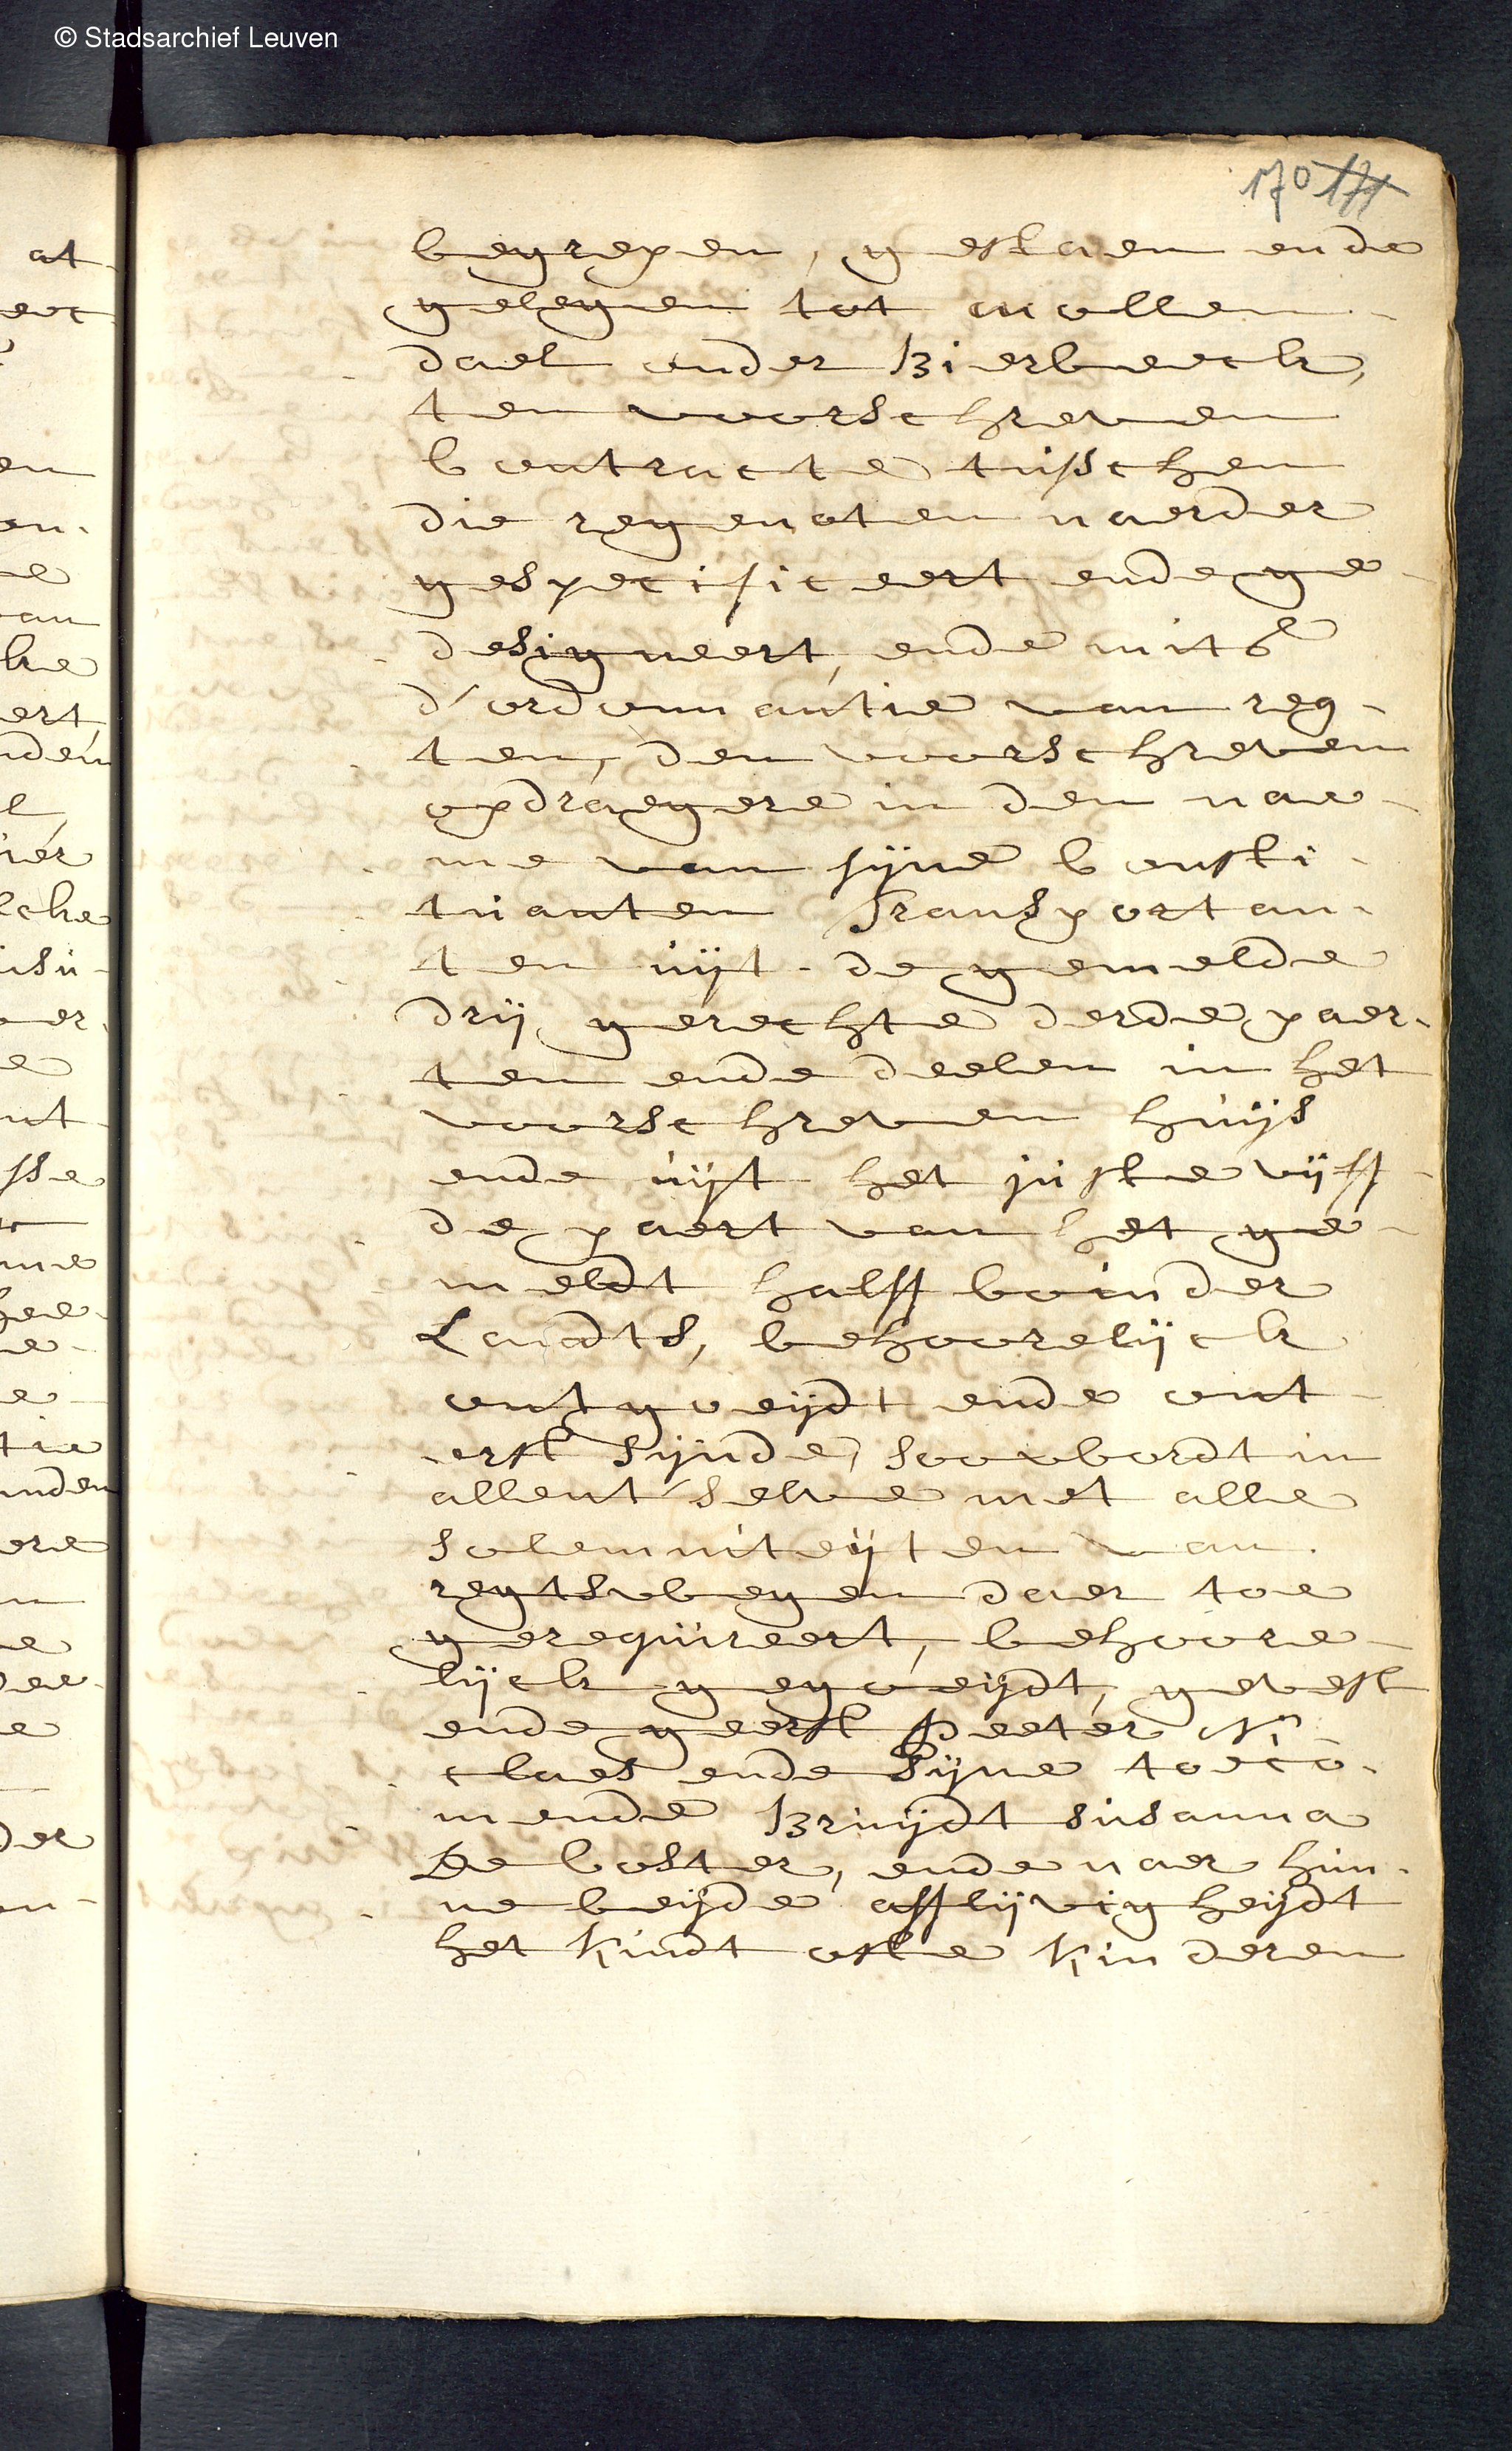 © Stadsarchief Leuven
170 171
begrepen, gestaen ende
gelegen tot mollen-
dael onder Bierbeeck,
ten voorschreven
Contracte tusschen
die regenoten naerder
gespecificeert ende ge-
designeert, ende mits
d'ordonnantie van reg-
ten, den voorschreven
opdraegere in den nae-
me van sijne Consti-
tuanten Transportan-
ten uijt de gemelde
drij gerechte derde paer-
ten ende deelen in het
voorschreven huijs
ende uijt het juste vijff-
de paert van het ge-
meldt halff boinder
Landts, behoorelijck
ontgoeijdt ende ont-
erft sijnde, soo wordt in
allent'selve met alle
solemniteijten van
regtswegen daer toe
gerequireert, behoore-
lijck gegoeijdt, gevest
ende geerft Peeter Ni-
claes ende Sijne toeco-
mende Bruijdt susanna
De Coster, ende naer hun-
ne beijde afflijvigheijdt
het kindt ofte kinderen